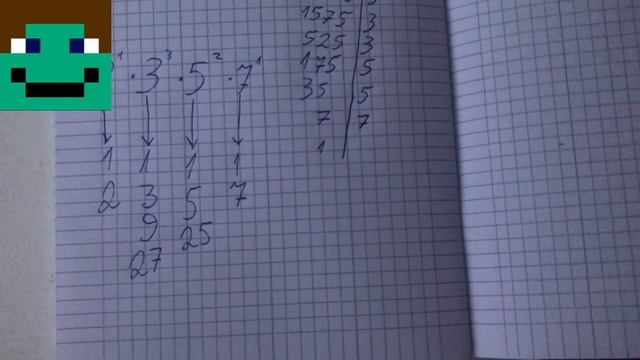 ¹ · 3³ · 5² · 7¹
1 1 1 1
2 3 5 7
9 25
27
1575 | 3
525 | 3
175 | 5
35 | 5
7 | 7
1